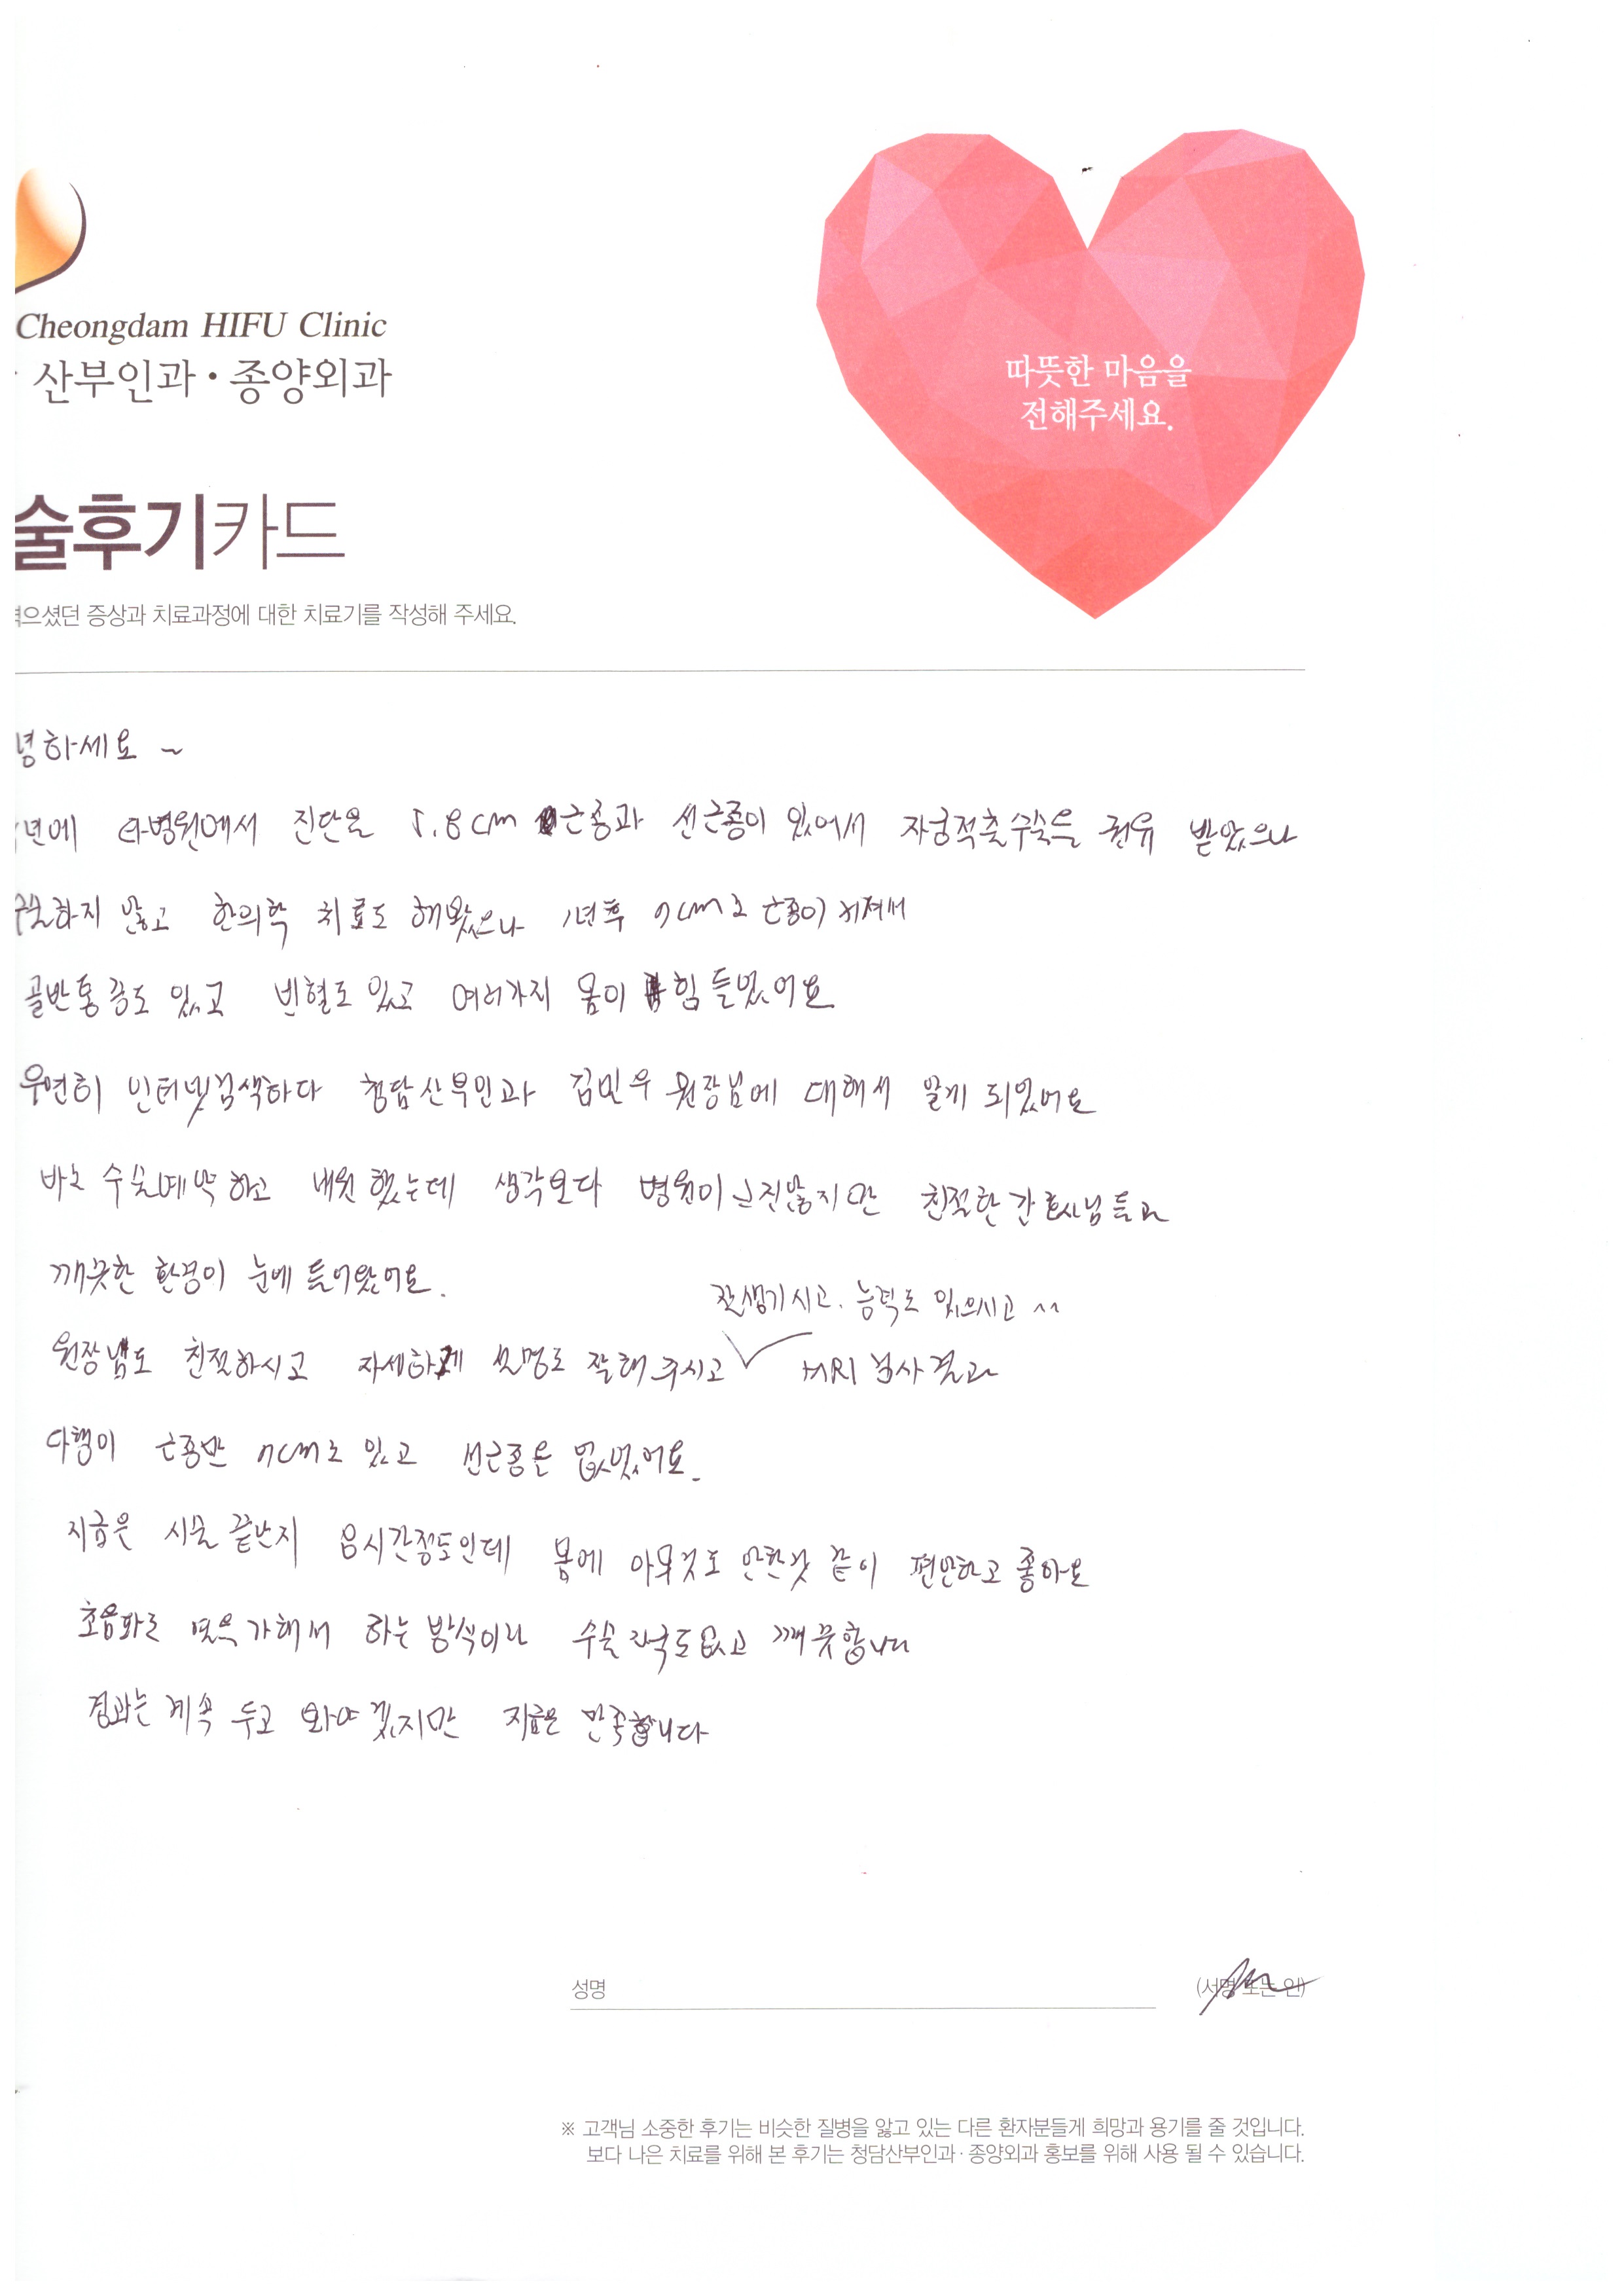 Cheongdam HIFU Clinic
산부인과·종양외과
따뜻한 마음을
전해주세요.
술후기카드
으셨던 증상과 치료과정에 대한 치료기를 작성해 주세요.
녕하세요 ~
년에 타병원에서 진단을 5.8cm 근종과 선근종이 있어서 자궁적출수술을 권유 받았으나
하지 않고 한의학 치료도 해봤으나 1년후 7cm로 근종이 커져서
골반통증도 있고 빈혈도 있고 여러가지 몸이 힘들었어요
우연히 인터넷검색하다 청담산부인과 김민우 원장님에 대해서 알게 되었어요
바로 수술예약하고 내원했는데 생각보다 병원이 크진않지만 친절한 간호사님들과
깨끗한 환경이 눈에 들어왔어요.
잘생기시고. 능력도 있으시고 ^^
원장님도 친절하시고 자세하게 설명도 잘해주시고 MRI 검사결과
다행이 근종만 7cm로 있고 선근종은 없었어요.
지금은 시술 끝난지 음시간정도인데 몸에 아무것도 안한것 같이 편안하고 좋아요
초음파로 열을 가해서 하는 방식이라 수술자국도없고 깨끗합니다
경과는 계속 두고 봐야겠지만 지금은 만족합니다
성명 (서명 또는 인)
※ 고객님 소중한 후기는 비슷한 질병을 앓고 있는 다른 환자분들게 희망과 용기를 줄 것입니다.
보다 나은 치료를 위해 본 후기는 청담산부인과·종양외과 홍보를 위해 사용 될 수 있습니다.